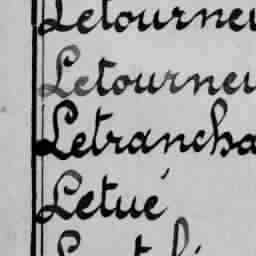 Letourneu
Letourneu
Letrancha
Letué